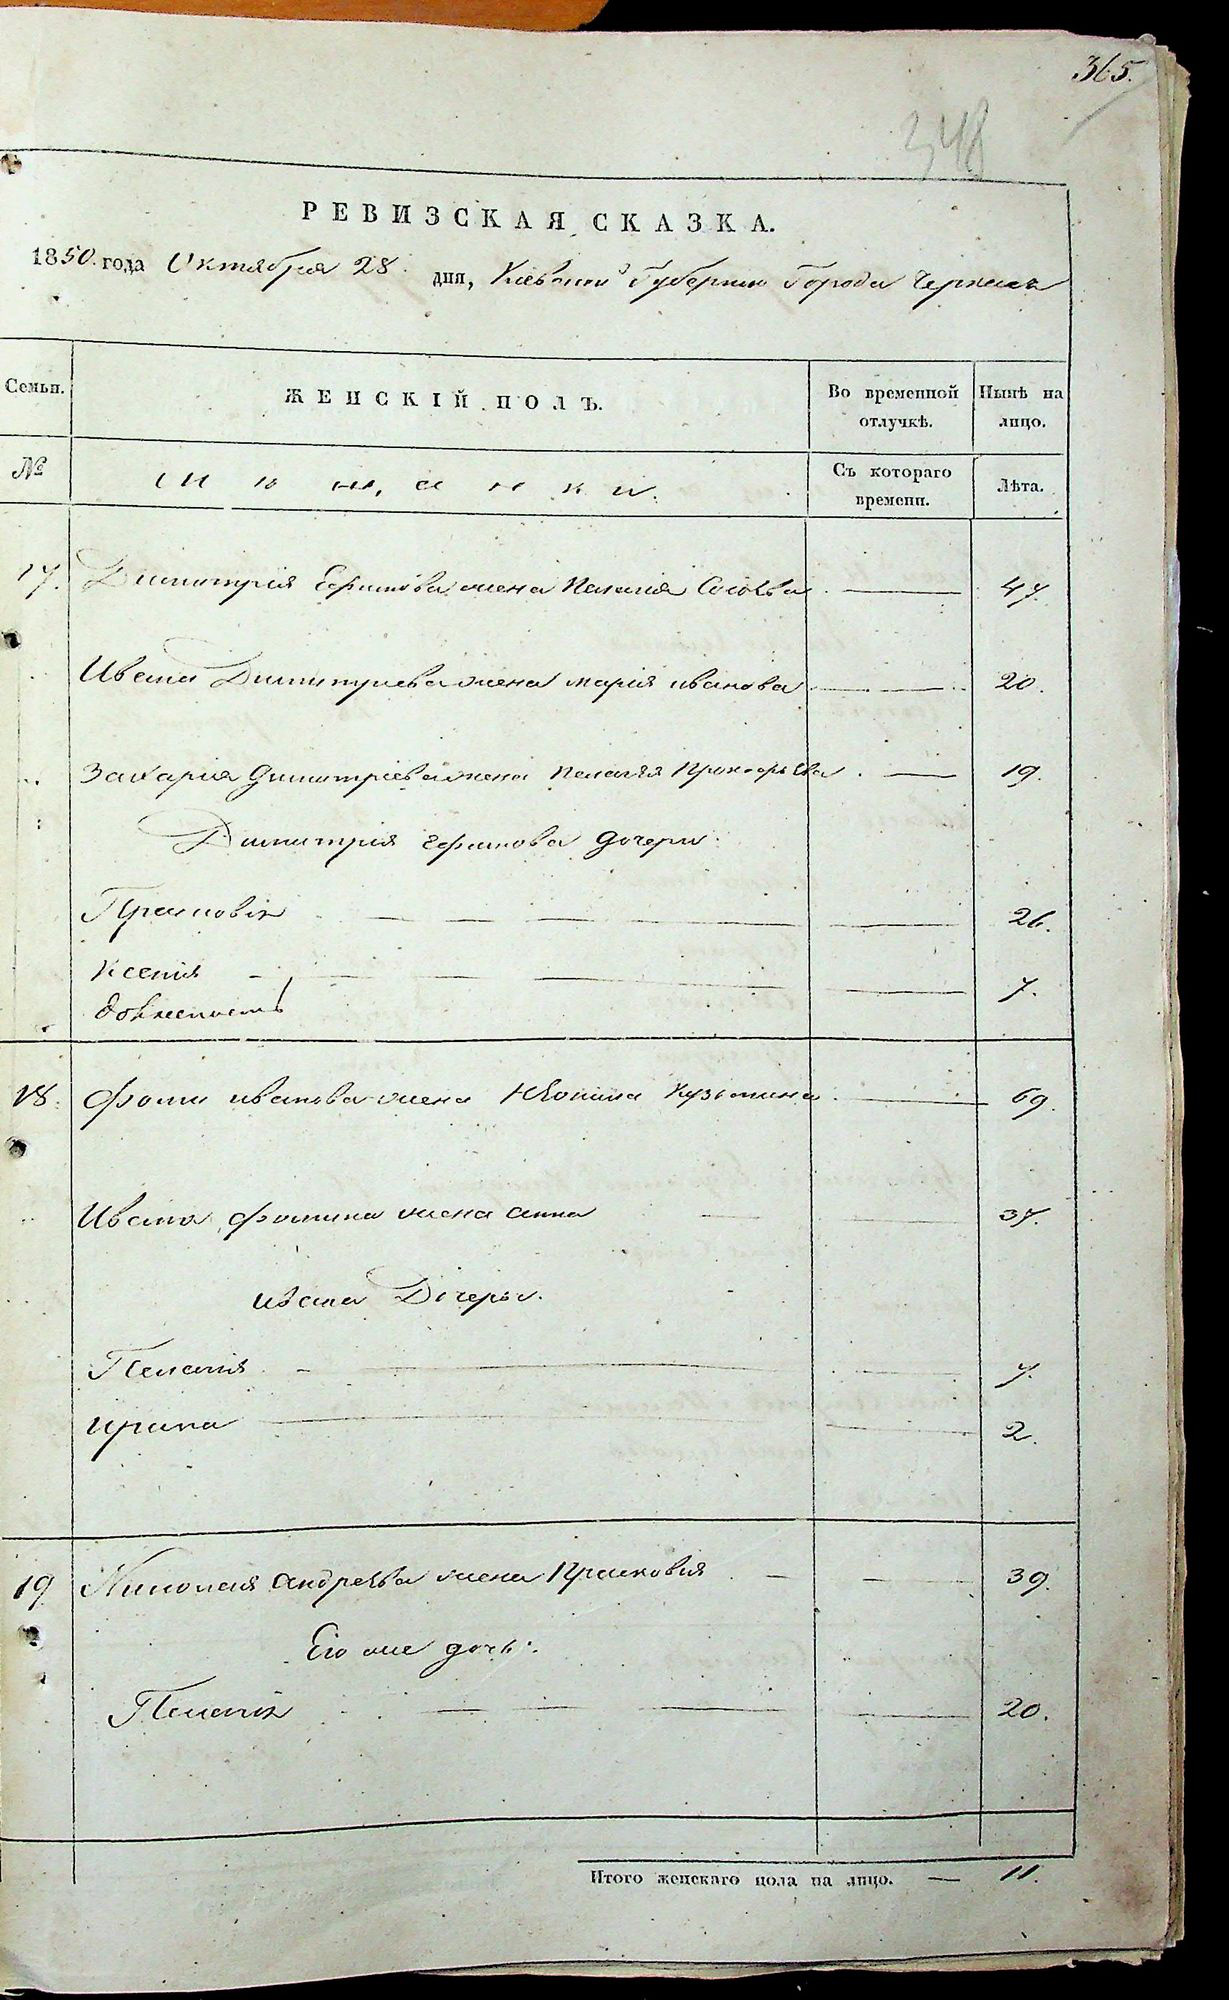 365.
348
РЕВИЗСКАЯ СКАЗКА.
1850 года Октября 28 дня, Киевской Губернии Города Черкасъ
Семьи. ЖЕНСКІЙ ПОЛЪ. Во временной отлучкѣ. Нынѣ на лицо.
№ Съ котораго времени. Лѣта.
17. Димитрія Ефимова жена Пелагія 47.
Ивана Димитриева жена Марія Иванова 20.
Захария Димитріева жена Пелагѣя Прокофьева 19.
Димитрія Ефимова дочери
Прасковія 26.
Ксенія 7.
18. Фомы Иванова жена Кузьмина 69.
Ивана Фомина жена Анна 37.
Ивана Дочеры.
Пелагія 7.
Ирина 2.
19 Николая Андреѣва жена Прасковія 39.
Его же дочь:
Пелагія 20.
Итого женскаго пола на лицо. — 11.